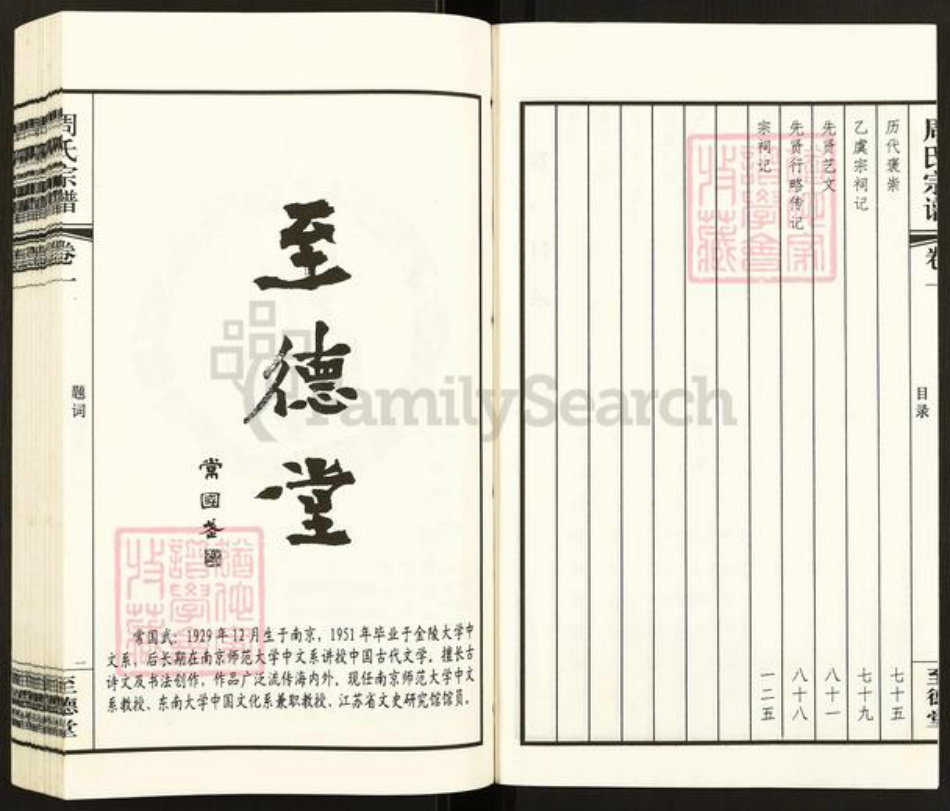 周氏宗谱
卷一
目录
至德堂
历代褒崇 七十五
乙虞宗祠记 七十九
先贤艺文 八十一
先贤行略传记 八十八
宗祠记 一二五
至德堂
常國武
常国武：1929年12月生于南京，1951年毕业于金陵大学中
文系，后长期在南京师范大学中文系讲授中国古代文学。擅长古
诗文及书法创作，作品广泛流传海内外。现任南京师范大学中文
系教授、东南大学中国文化系兼职教授、江苏省文史研究馆馆员。
周氏宗谱
卷一
题词
一
至德堂
猶他家
譜學會
收藏
猶他家
譜學會
收藏
FamilySearch